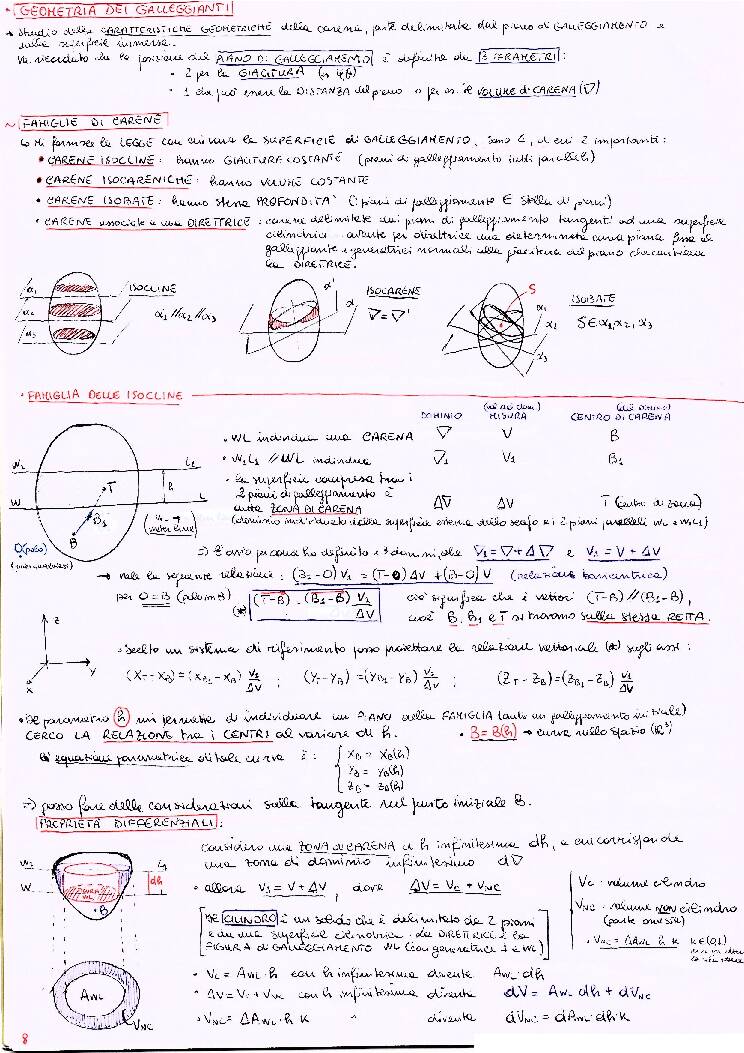 GEOMETRIA DEI GALLEGGIANTI
Studio delle CARATTERISTICHE GEOMETRICHE della carena, parte delimitata dal piano di GALLEGGIAMENTO e
sulla superficie immersa.
Va ricordato che la posizione del PIANO DI GALLEGGIAMENTO è definita da 3 PARAMETRI:
• 2 per la GIACITURA
• 1 che può essere la DISTANZA del piano o per es. il VOLUME di CARENA (∇)
~ FAMIGLIE DI CARENE
la LEGGE con cui varia la SUPERFICIE di GALLEGGIAMENTO, sono 4, di cui 2 importanti:
• CARENE ISOCLINE: hanno GIACITURA COSTANTE (piani di galleggiamento tutti paralleli)
• CARENE ISOCARENICHE: hanno VOLUME COSTANTE
• CARENE ISOBATE: hanno stessa PROFONDITA' (i piani di galleggiamento E stella di piani)
• CARENE associate a una DIRETTRICE: carene delimitate dai piani di galleggiamento tangenti ad una superficie
cilindrica avente per direttrice una determinata curva piana fissa al
galleggiante e generatrici normali alla giacitura del piano che contiene
la DIRETTRICE.
α1 α2 α3 ISOCLINE α1 // α2 // α3
α' α ISOCARENE ∇ = ∇'
S α1 α2 α3 ISOBATE S ∈ α1, α2, α3
• FAMIGLIA DELLE ISOCLINE
DOMINIO MISURA CENTRO DI CARENA
• WL individua una CARENA ∇ V B
• W1L1 // WL individua ∇1 V1 B1
• la superficie compresa tra i
2 piani di galleggiamento è
detta ZONA DI CARENA Δ∇ ΔV T (centro di zona)
(dominio individuato dalla superficie esterna dello scafo e i 2 piani paralleli WL e W1L1)
W1 L1 W L h T B1 B
(WL → water line)
O (polo)
∇1 = ∇ + Δ∇ e V1 = V + ΔV
→ vale la seguente relazione: (B1-O) V1 = (T-O) ΔV + (B-O) V (relazione baricentrica)
per O≡B (polo in B) (*) (T-B) = (B1-B) V1/ΔV cioè significa che i vettori (T-B) // (B1-B),
cioè B, B1 e T si trovano sulla stessa RETTA.
z y x
• Scelto un sistema di riferimento posso proiettare la relazione vettoriale (*) sugli assi:
(XT - XB) = (XB1 - XB) V1/ΔV ; (YT - YB) = (YB1 - YB) V1/ΔV ; (ZT - ZB) = (ZB1 - ZB) V1/ΔV
• Il parametro (h) mi permette di individuare un PIANO della FAMIGLIA
CERCO LA RELAZIONE tra i CENTRI al variare di h. • B = B(h) → curva nello spazio (R³)
equazione parametrica di tale curva è: { XB = XB(h)
YB = YB(h)
ZB = ZB(h)
=> posso fare delle considerazioni sulla tangente nel punto iniziale B.
PROPRIETÀ DIFFERENZIALI:
considero una ZONA di CARENA a h infinitesima dh, a cui corrisponde
una zona di dominio infinitesimo d∇
W1 L1 W dh FIGURA WL B
• allora V1 = V + ΔV, dove ΔV = Vc + VNC
Vc = volume cilindro
VNC = volume NON cilindro
• VNC = ΔAWL h K K∈(0,1)
[Il CILINDRO è un solido che è delimitato da 2 piani
e da una superficie cilindrica. La DIRETTRICE è la
FIGURA di GALLEGGIAMENTO WL (con generatrice ⊥ a WL)]
AWL VNC
• Vc = AWL·h con h infinitesima diventa AWL dh
• ΔV = Vc + VNC con h infinitesima diventa dV = AWL dh + dVNC
• VNC = ΔAWL·h K " diventa dVNC = dAWL·dh·K
8